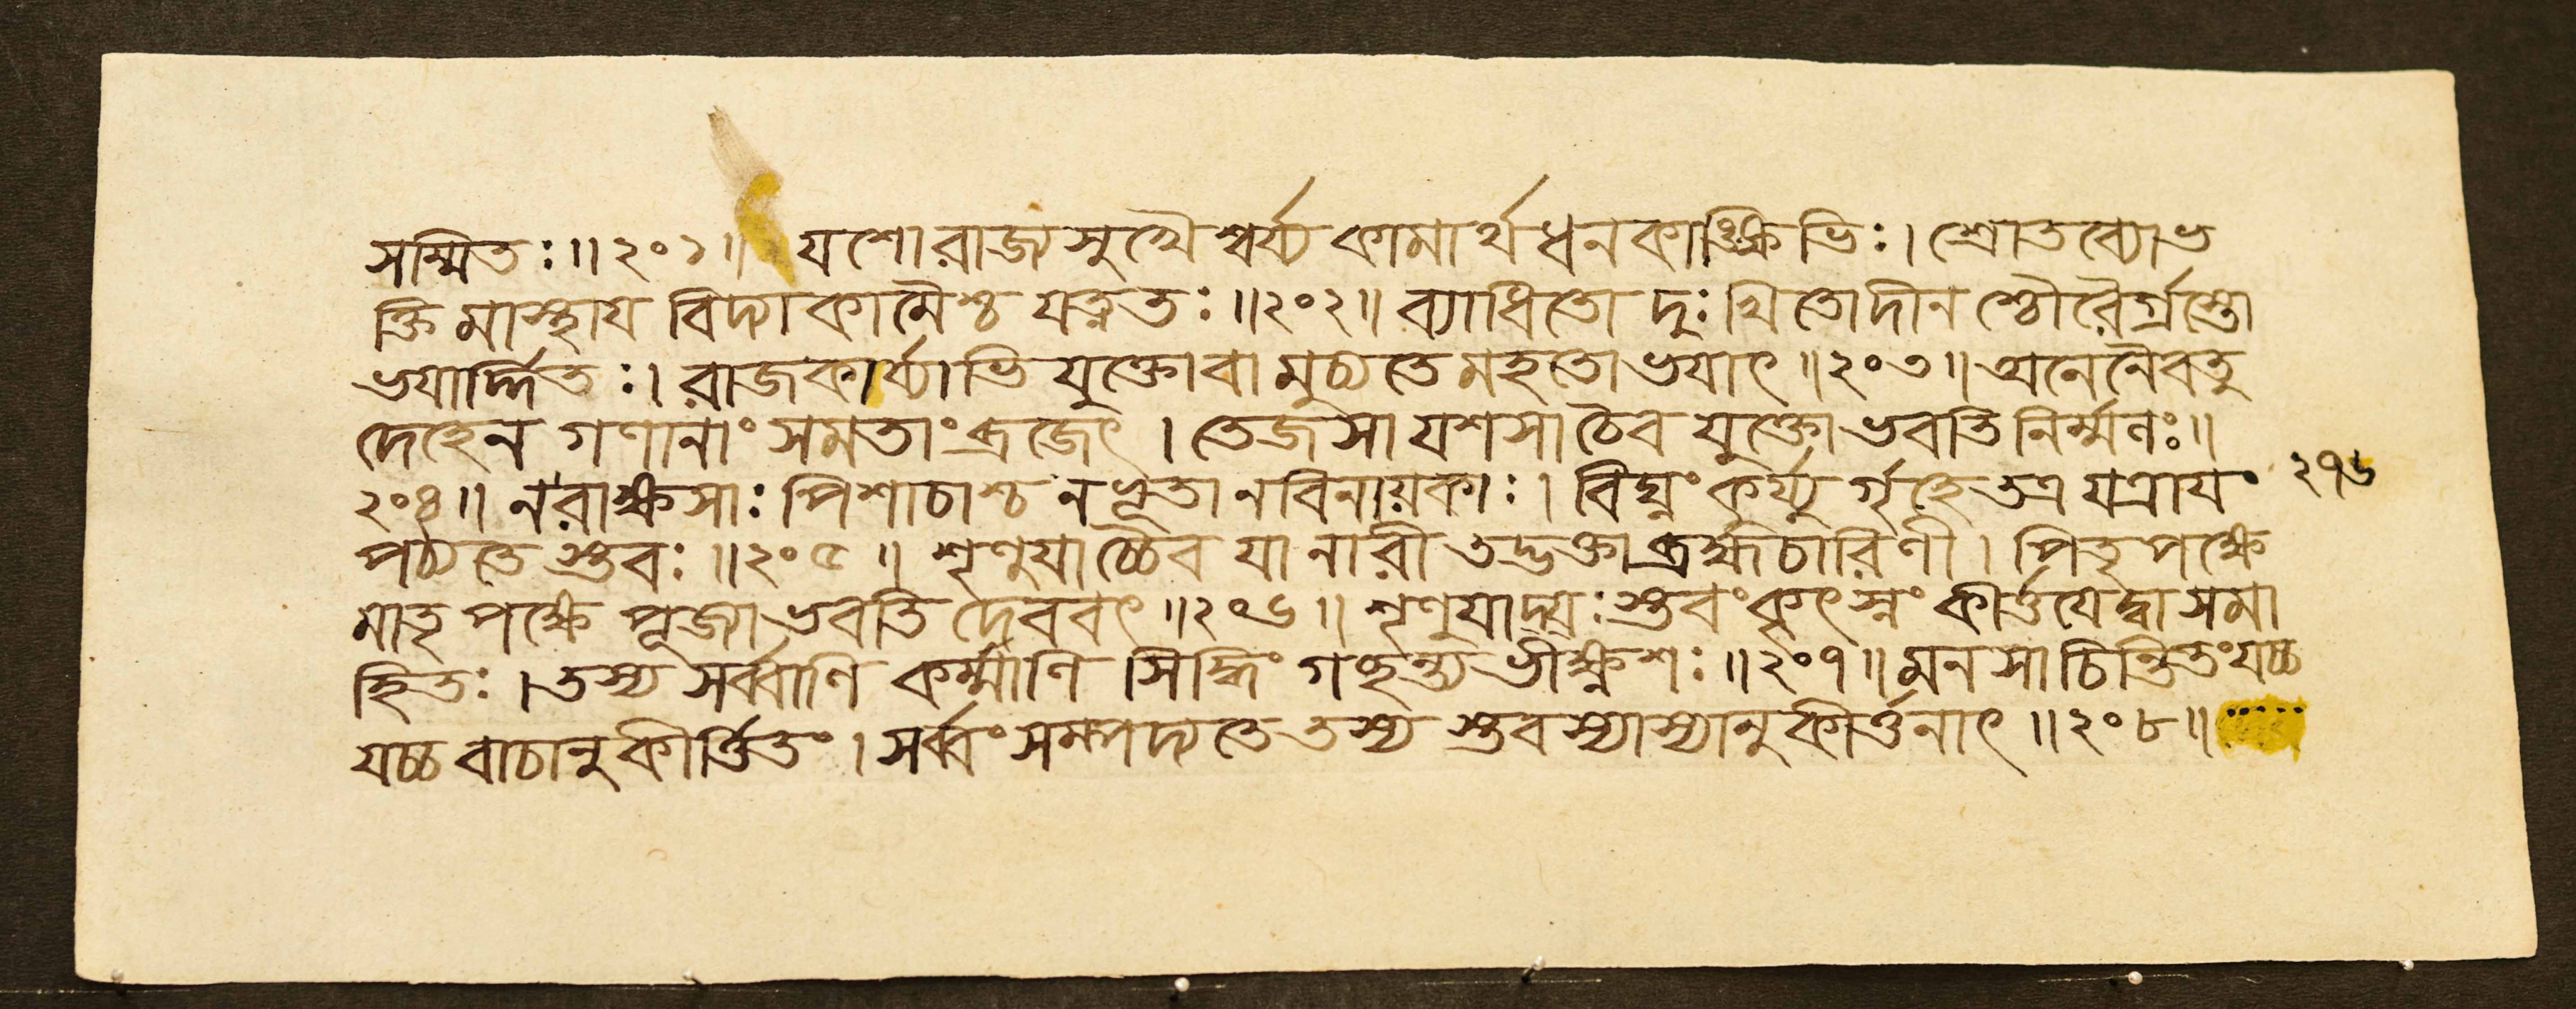 সম্মিতঃ॥২০১॥ যশোরাজ্যসুখৈশ্বর্য্যকামার্থধনকাঙ্ক্ষিভিঃ। শ্রোতব্যোভ
ক্তিমাস্থায বিদ্যাকামৈশ্চ যত্নতঃ॥২০২॥ ব্যাধিতো দুঃখিতোদীনশ্চৌরৈর্গ্রস্তো
ভযার্দ্দিতঃ। রাজকার্য্যাভিযুক্তোবা মুচ্যতে মহতোভযাৎ॥২০৩॥ অনেনৈবতু
দেহেন গণানাং সমতাং ব্রজেৎ। তেজসা যশসা চৈব যুক্তোভবতি নির্ম্মলঃ॥
২০৪॥ ন রাক্ষসাঃ পিশাচাশ্চ ন ভূতা ন বিনায়কাঃ। বিঘ্নং কুর্য্যুর্গৃহে তত্র যত্রাযং ২৭৬
পঠ্যতে স্তবঃ॥২০৫॥ শৃণুযাচ্চৈব যা নারী তদ্ভক্তা ব্রহ্মচারিণী। পিতৃপক্ষে
মাতৃপক্ষে পূজ্যা ভবতি দেববৎ॥২০৬॥ শৃণুযাদ্যঃ স্তবং কৃৎস্নং কীর্ত্তযেদ্বা সমা
হিতঃ। তস্য সর্ব্বাণি কর্ম্মাণি সিদ্ধিং গচ্ছন্ত্যভীক্ষ্ণশঃ॥২০৭॥ মনসা চিন্তিতং যচ্চ
যচ্চ বাচানুকীর্ত্তিতং। সর্ব্বং সম্পদ্যতে তস্য স্তবস্যাস্যানুকীর্ত্তনাৎ॥২০৮॥